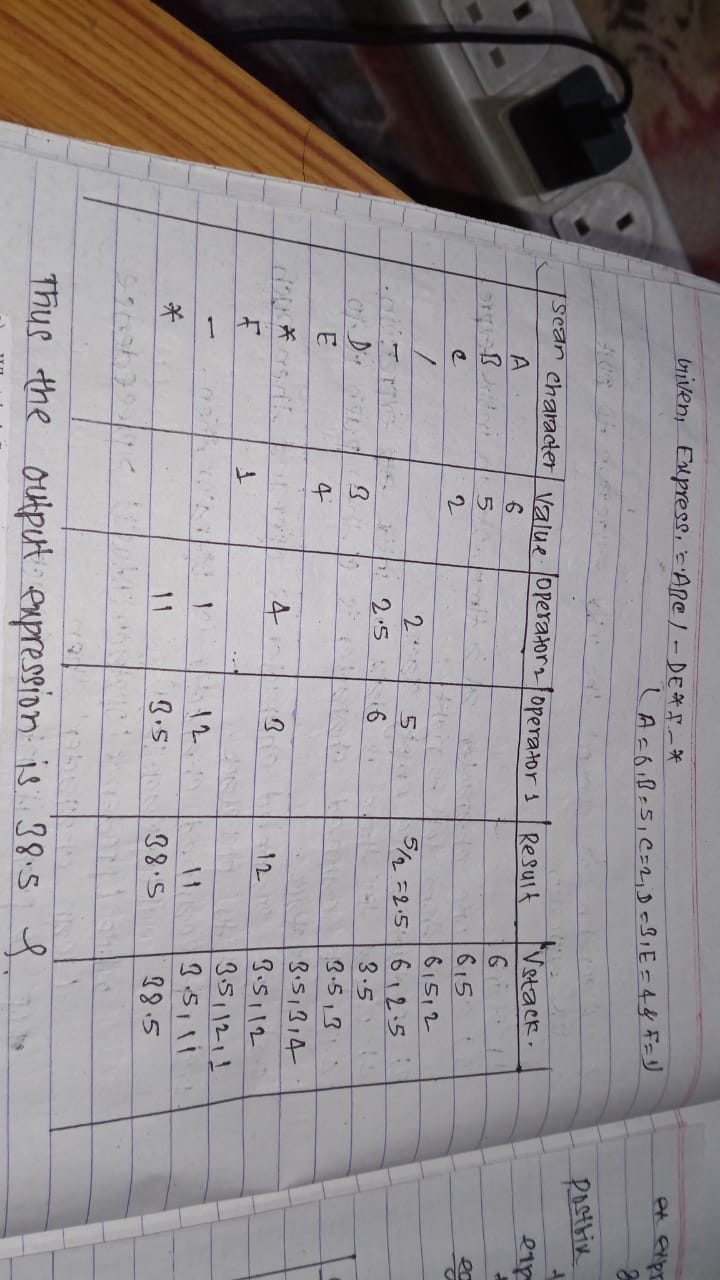 Given, Express. = ABC / - DE * F - *
( A = 6, B = 5, C = 2, D = 3, E = 4 & F = 1)
Scan character Value operator2 operator 1 Result Vstack.
A 6 6
B 5 6,5
C 2 6,5,2
/ 2 5 5/2 = 2.5 6,2.5
- 2.5 6 3.5
D 3 3.5,3
E 4 3.5,3,4
* 4 3 12 3.5,12
F 1 3.5,12,1
- 1 12 11 3.5,11
* 11 3.5 38.5 38.5
Thus the output expression is 38.5
Postfix